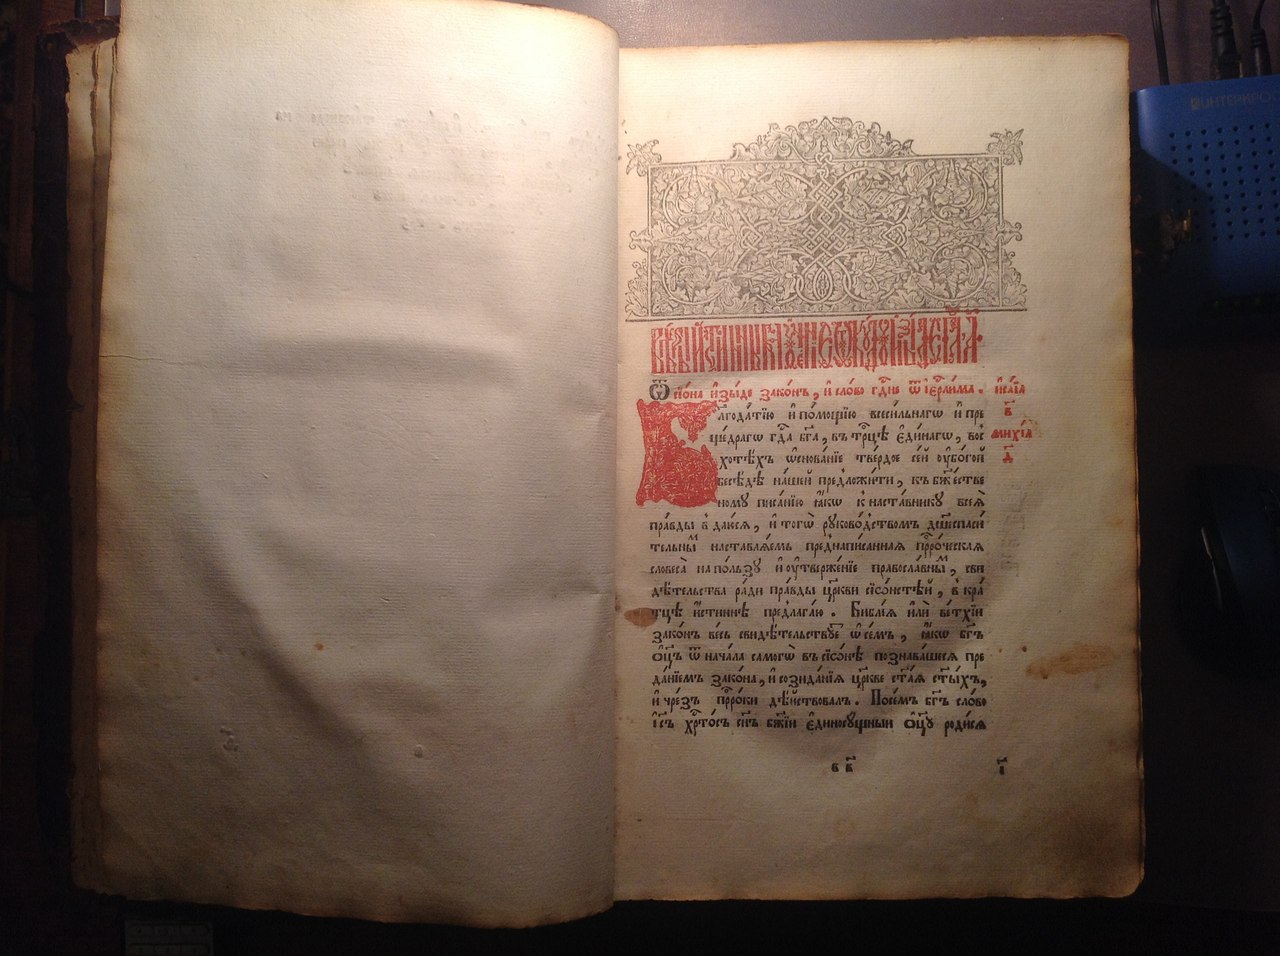 Ѿ сїѡ́на и҆зы́де зако́нъ, и҆ сло́во гдⷭ҇не ѿ і҆ерⷭ҇ли́ма. и҆са́їа
в҃
Бл҃года́тїю и҆ по́мощїю всеси́льнагѡ и҆ пре
ще́драгѡ гдⷭ҇а бг҃а, въ трⷪ҇цѣ є҆ди́нагѡ, вос
михїа
хотѣ́хъ ѡ҆снова́нїе тве́рдое се́й оу҆бо́гой
д҃
бесѣ́дѣ на́шей предложи́ти, къ бжⷭ҇тве
ному писа́нїю ꙗ҆́кѡ к наста́внику всеѧ̀
пра́вды в да́ксѧ, и҆ тогѡ̀ руково́дствомъ дш҃еспаси
тельнымⷨ наставлѧ́емь преднапи́санная прⷪ҇ро́ческая
словеса̀ на по́льзу и҆ оу҆твержде́нїе правосла́вныⷨ, сви
дѣ́тельства ра́ди пра́вды цр҃кви сїѡ́нстѣй, в кра́
тцѣ и҆́стиннѣ предлага́ю. Би́блїа и҆лѝ ве́тхїи
зако́нъ весь свидѣ́тельствуетъ ѡ҆ се́мъ, ꙗ҆́кѡ бг҃ъ
ѻ҆ц҃ъ ѿ нача́ла самогѡ̀ въ сїѡ́нѣ познава́шесѧ пре
да́нїемъ зако́на, и҆ созида́нїѧ цр҃кве ст҃а́ѧ ст҃ы́хъ,
и҆ чре́зъ прⷪ҇ро́ки дѣ́йствовалъ. По се́мъ бг҃ъ сло́во
і҆с҃ъ хрⷭ҇то́съ сн҃ъ бж҃їи є҆диносу́щныи ѻ҆ц҃у̀ роди́сѧ
в в҃ г҃
ИНТЕРКРОСС